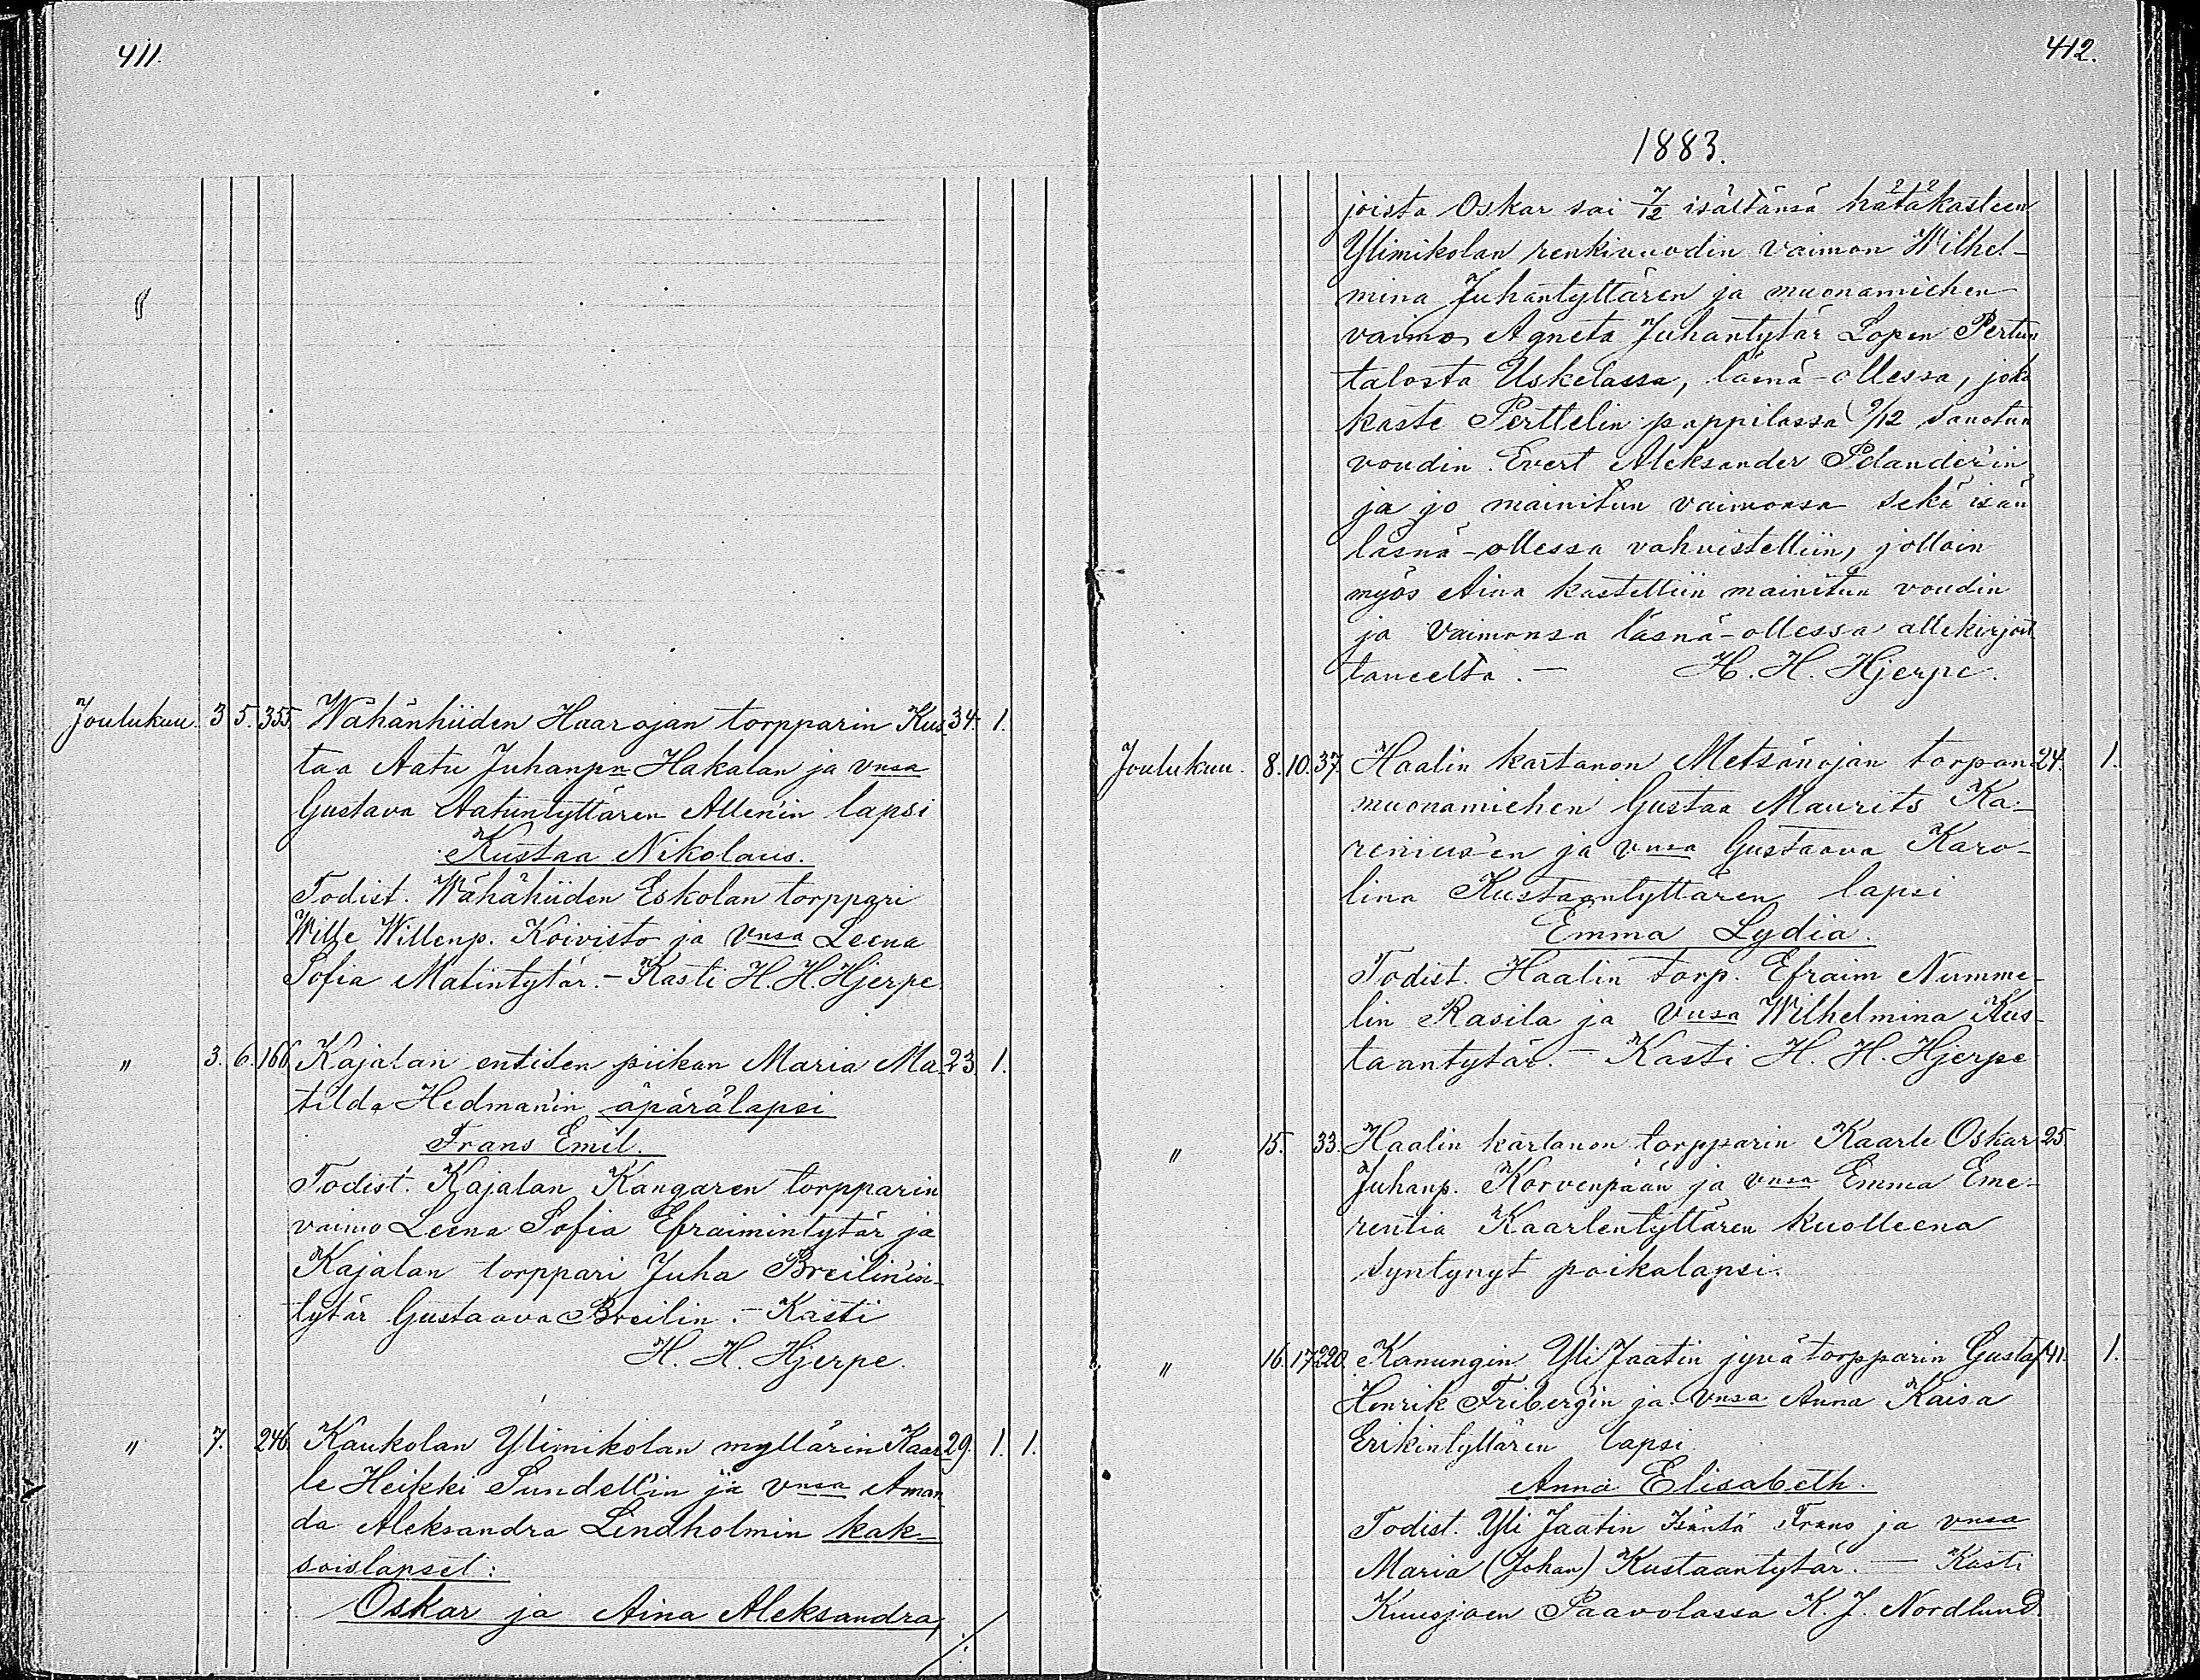 411.
Joulukuu. 3 5. 355. Wähänhiiden Haarojan torpparin Kus- 34. 1.
taa Aatu Juhanpn Hakalan ja vnsa
Gustava Aatuntyttären Allenin lapsi
Kustaa Nikolaus.
Todist. Wähähiiden Eskolan torppari
Wille Willenp. Koivisto ja vnsa Leena
Sofia Matintytär. – Kasti H. H. Hjerpe.
" 3. 6. 166 Kajalan entiden piikan Maria Ma- 23. 1.
tilda Hedman'in äpärälapsi
Frans Emil.
Todist. Kajalan Kangaren torpparin
vaimo Leena Sofia Efraimintytär ja
Kajalan torppari Juha Breilin'in
tytär Gustaava Breilin. – Kasti
H. H. Hjerpe.
" 7. 246. Kaukolan Ylimikolan myllärin Kaar- 29. 1. 1.
le Heikki Sundell'in ja vnsa Aman-
da Aleksandra Lindholmin kak-
soislapset:
Oskar ja Aina Aleksandra,
412.
1883.
joista Oskar sai 7/12 isältänsä hätäkasteen
Ylimikolan renkivuodin vaimon Wilhel-
mina Juhantyttären ja muonamiehen
vaimo Agneta Juhantytär Lopen Pertun
talosta Uskelassa, läsnä-ollessa, joka
kaste Perttelin pappilassa 9/12 sanotun
voudin Evert Aleksander Pelander'in
ja jo mainitun vaimonsa sekä isän
läsnä-ollessa vahvistettiin, jolloin
myös Aina kastettiin mainitun voudin
ja vaimonsa läsnä-ollessa allekirjoit
taneelta. – H. H. Hjerpe.
Joulukuu. 8. 10. 37. Haalin kartanon Metsänojan torpan 24. 1.
muonamiehen Gustaa Maurits Ka-
renius'en ja vnsa Gustaava Karo-
lina Kustaantyttären lapsi
Emma Lydia.
Todist. Haalin torp. Efraim Numme-
lin Rasila ja vnsa Wilhelmina Kus-
taantytär. – Kasti H. H. Hjerpe
" 15. 33. Haalin kartanon torpparin Kaarle Oskar 25.
Juhanp. Korvenpään ja vnsa Emma Eme-
rentia Kaarlentyttären kuolleena
syntynyt poikalapsi.
" 16. 17. 220. Kanungin Yli Jaatin jyvätorpparin Gustaf 41. 1.
Henrik Friberg'in ja vnsa Anna Kaisa
Erikintyttären lapsi
Anna Elisabeth.
Todist. Yli Jaatin Isäntä Frans ja vnsa
Maria (Johan) Kustaantytär. – Kasti
Kuusjoen Paavolassa K. J. Nordlund.